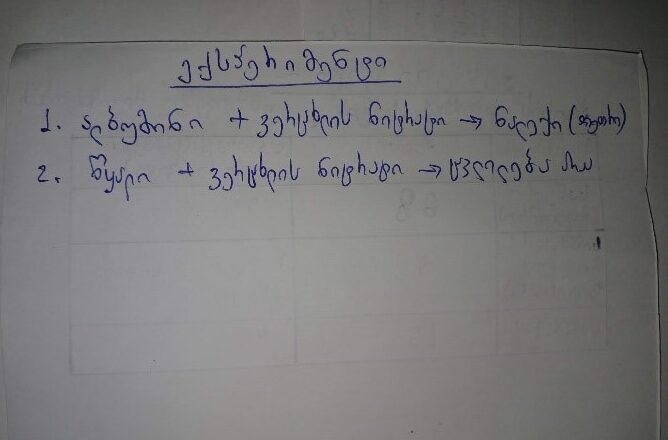 ექსპერიმენტი
1. ალბუმინი + ვერცხლის ნიტრატი → ნალექი (თეთრი)
2. წყალი + ვერცხლის ნიტრატი → ცვლილება არა